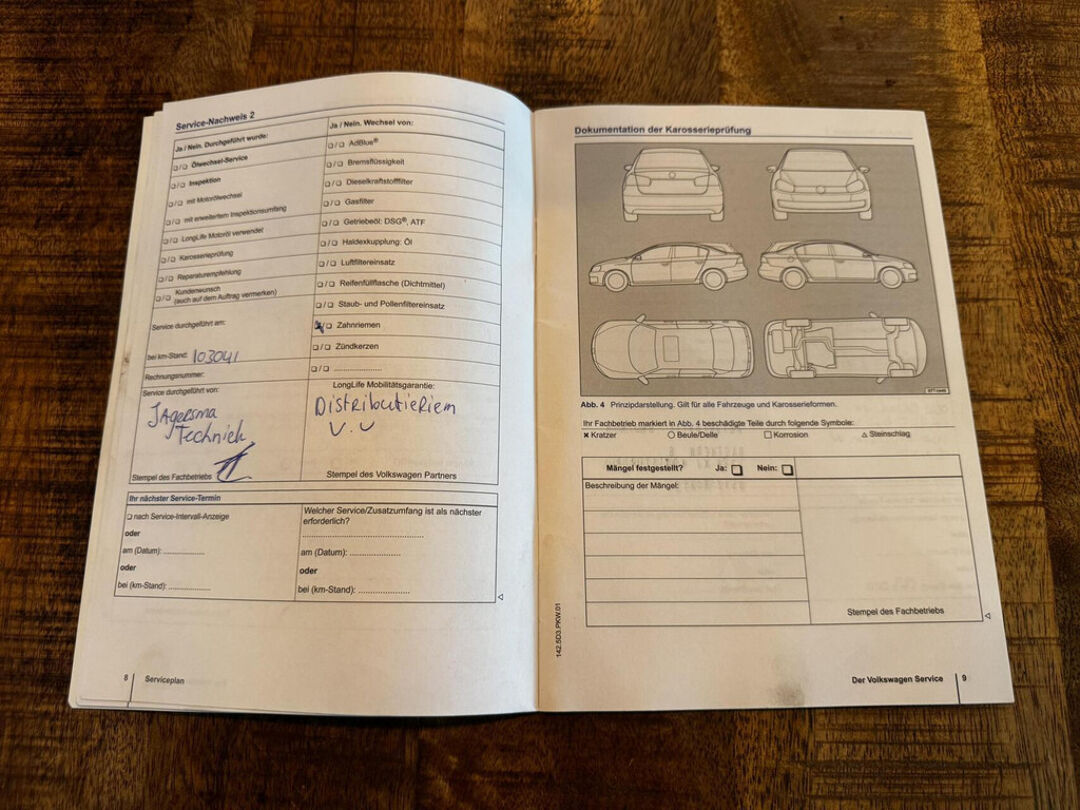 Service-Nachweis 2
Ja / Nein. Durchgeführt wurde:
❏/❏ Ölwechsel-Service
❏/❏ Inspektion
❏/❏ mit Motorölwechsel
❏/❏ mit erweitertem Inspektionsumfang
❏/❏ LongLife Motoröl verwendet
❏/❏ Karosserieprüfung
❏/❏ Reparaturempfehlung
❏/❏ Kundenwunsch
(auch auf dem Auftrag vermerken)
Service durchgeführt am:
bei km-Stand: 103041
Rechnungsnummer:
Service durchgeführt von:
JAgersma
Techniek
Stempel des Fachbetriebs
Ja / Nein. Wechsel von:
❏/❏ AdBlue®
❏/❏ Bremsflüssigkeit
❏/❏ Dieselkraftstofffilter
❏/❏ Gasfilter
❏/❏ Getriebeöl: DSG®, ATF
❏/❏ Haldexkupplung: Öl
❏/❏ Luftfiltereinsatz
❏/❏ Reifenfüllflasche (Dichtmittel)
❏/❏ Staub- und Pollenfiltereinsatz
x/❏ Zahnriemen
❏/❏ Zündkerzen
❏/❏ ....................
LongLife Mobilitätsgarantie:
Distributieriem
V.V
Stempel des Volkswagen Partners
Ihr nächster Service-Termin
❏ nach Service-Intervall-Anzeige
oder
am (Datum): ..................
oder
bei (km-Stand): ..................
Welcher Service/Zusatzumfang ist als nächster
erforderlich?
........................................
am (Datum): ......................
oder
bei (km-Stand): ......................
8 Serviceplan
Dokumentation der Karosserieprüfung
Abb. 4 Prinzipdarstellung. Gilt für alle Fahrzeuge und Karosserieformen.
Ihr Fachbetrieb markiert in Abb. 4 beschädigte Teile durch folgende Symbole:
✖ Kratzer ○ Beule/Delle □ Korrosion △ Steinschlag
Mängel festgestellt? Ja: ❏ Nein: ❏
Beschreibung der Mängel:
Stempel des Fachbetriebs
142.5D3.PKW.01
Der Volkswagen Service 9